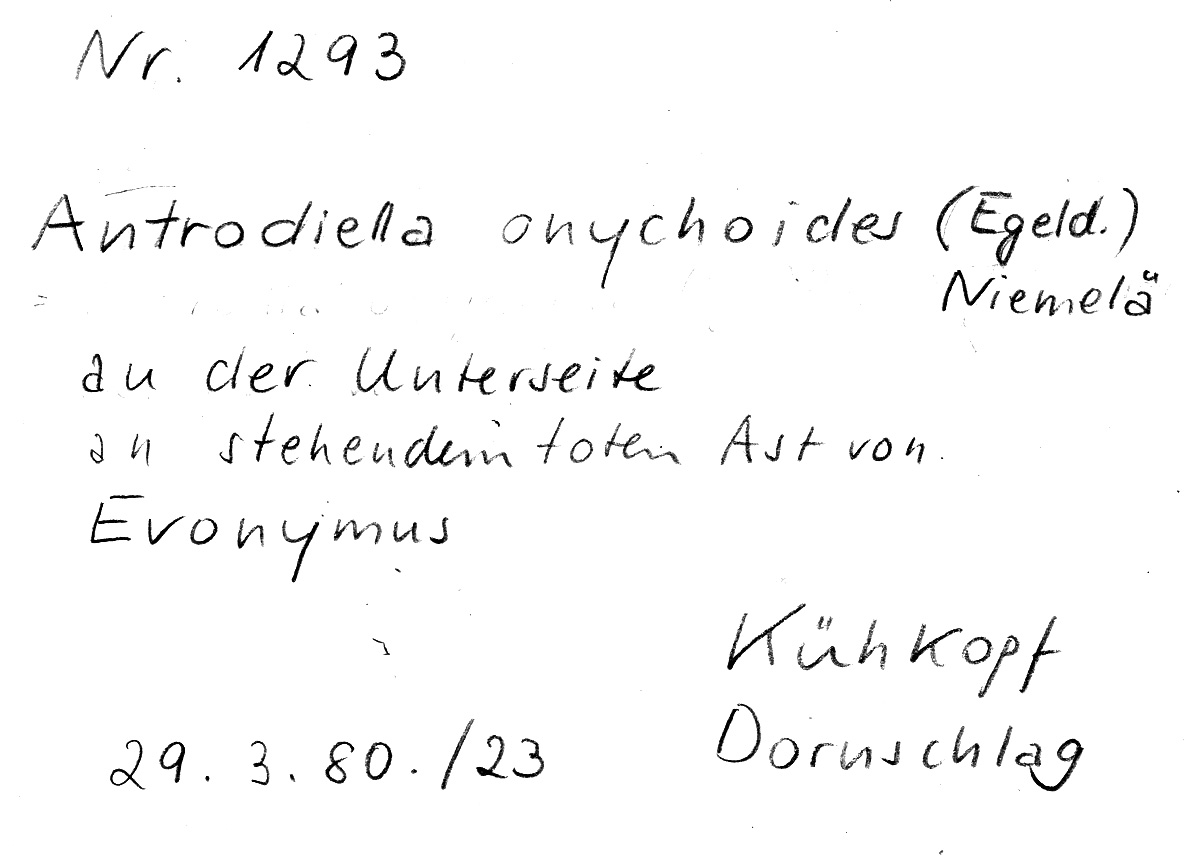 Nr. 1293
Antrodiella onychoides (Egeld.)
Niemelä
an der Unterseite
an stehendem toten Ast von
Evonymus
Kühkopf
Dornschlag
29. 3. 80. /23